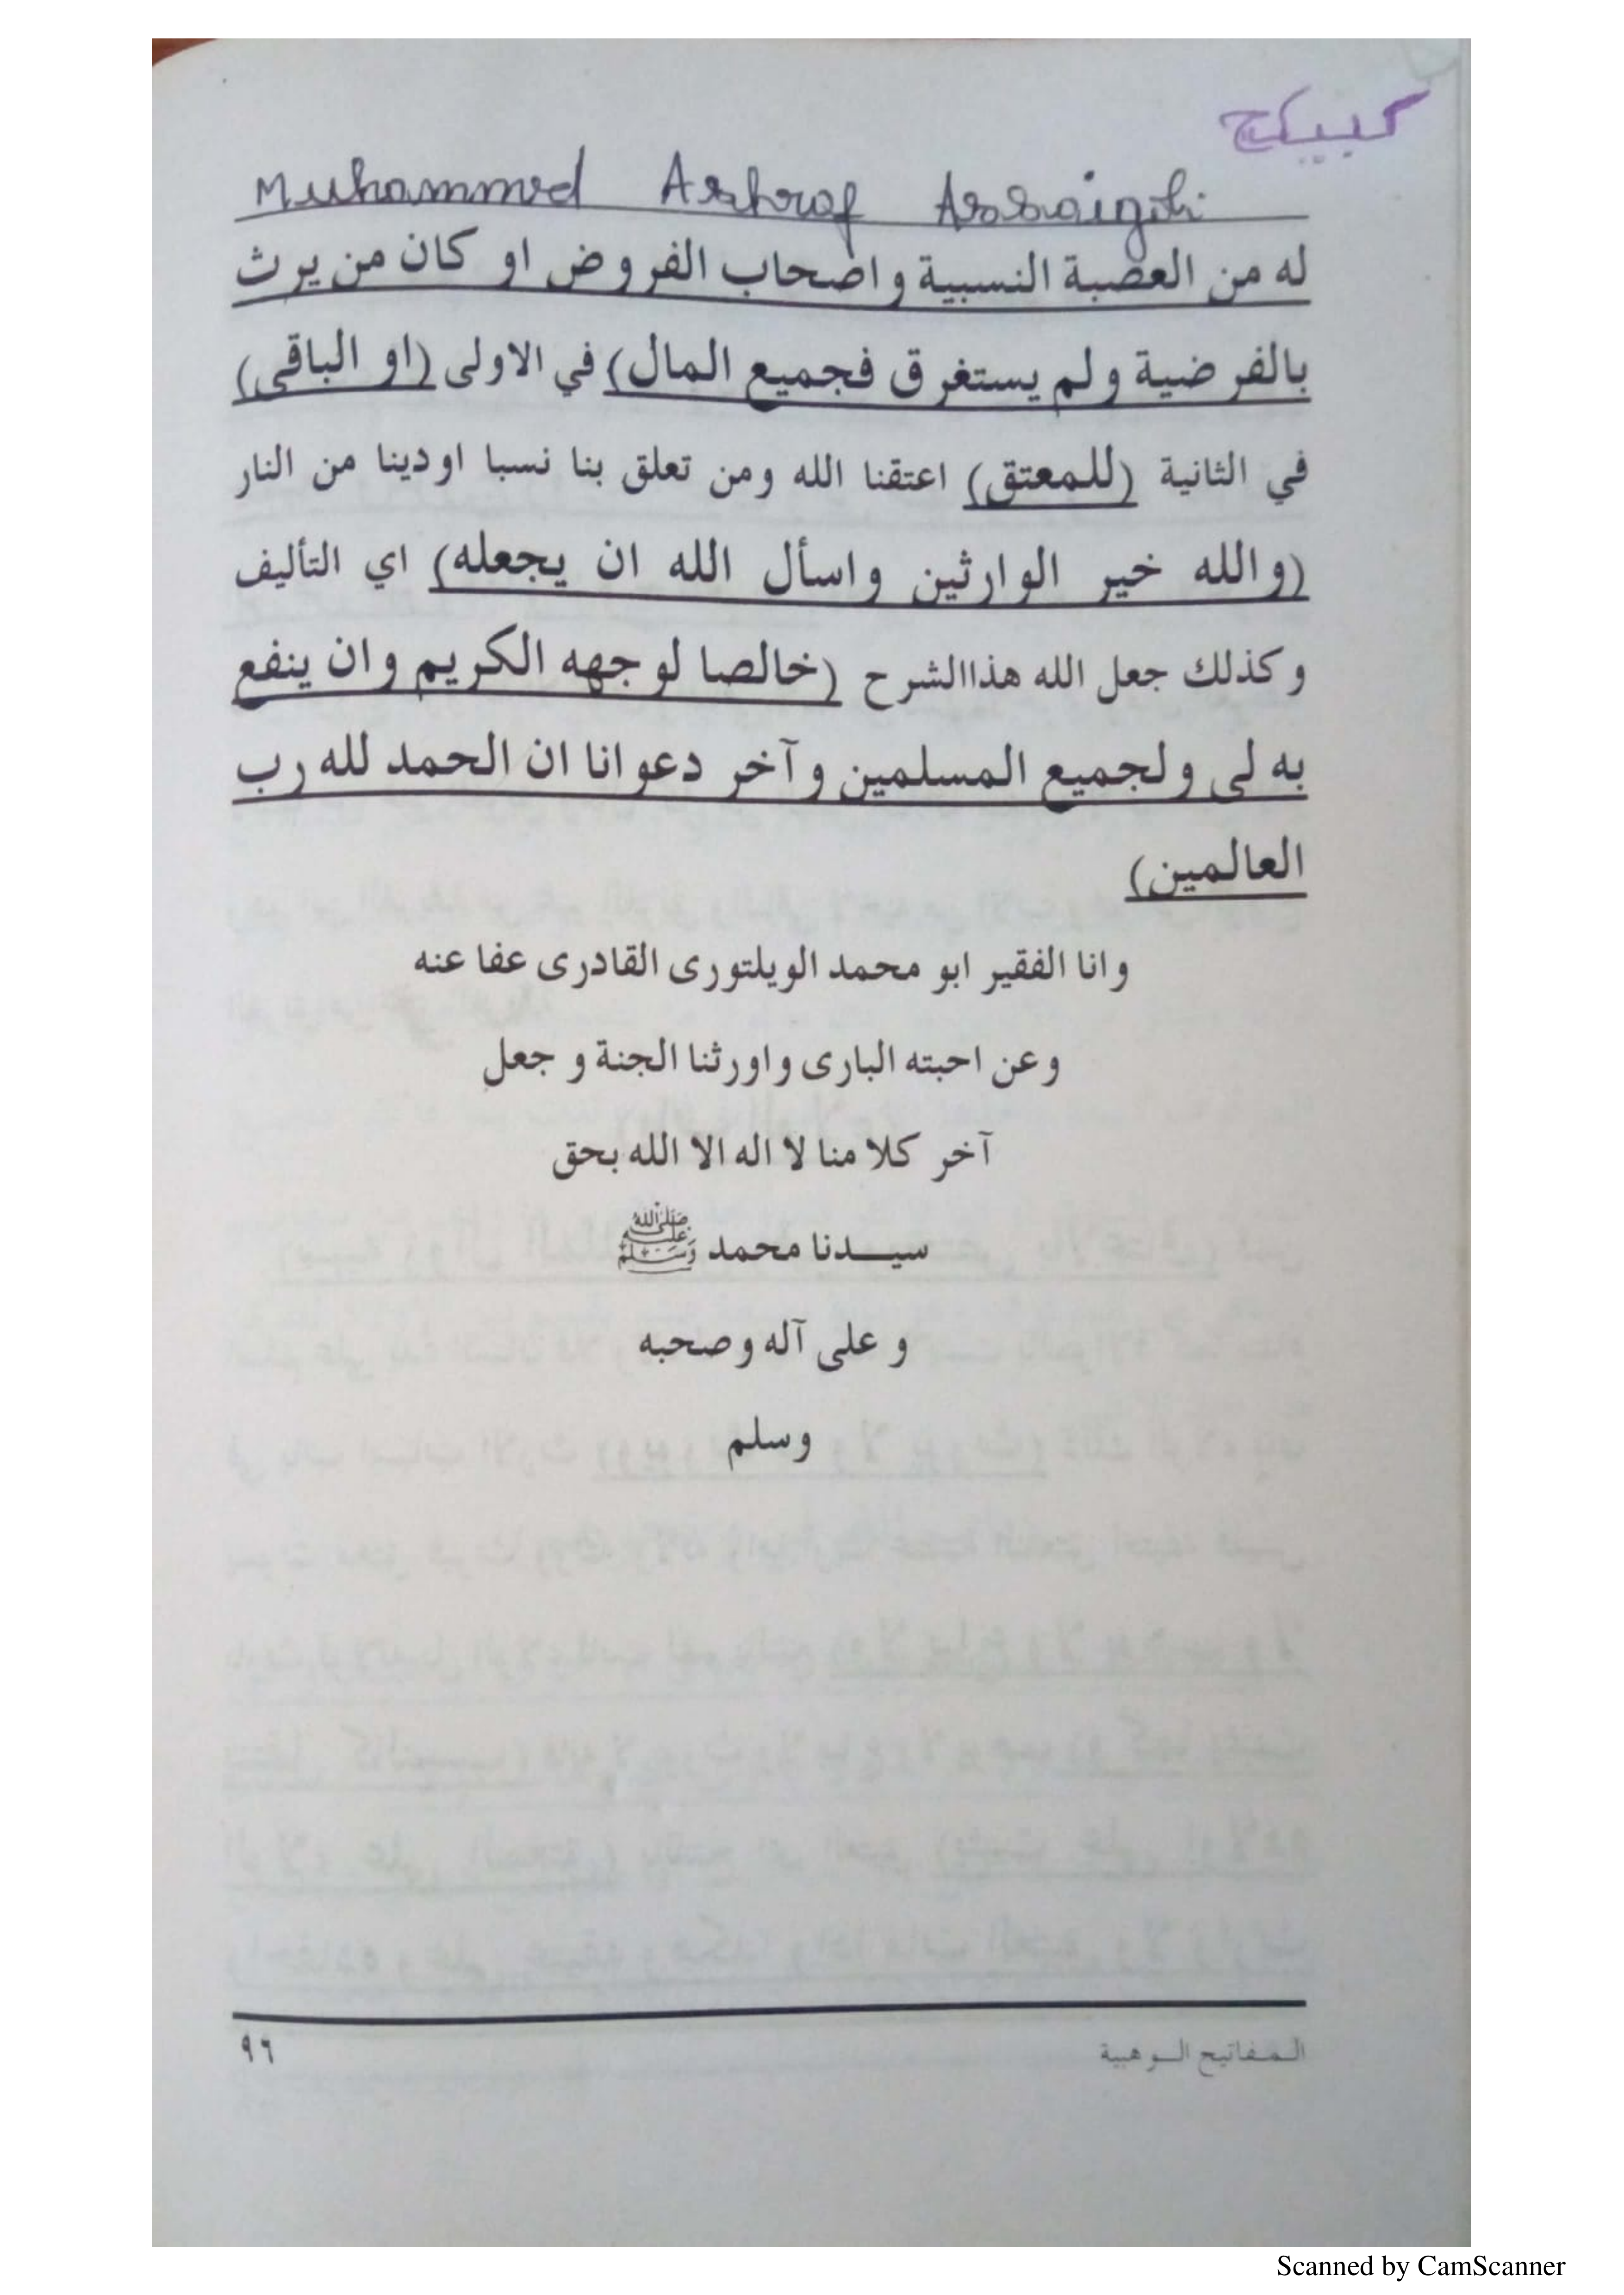 كبيكج
Muhammed Ashraf Assaigoli
له من العصبة النسبية واصحاب الفروض او كان من يرث
بالفرضية ولم يستغرق فجميع المال) في الاولى (او الباقي)
في الثانية (للمعتق) اعتقنا الله ومن تعلق بنا نسبا اودينا من النار
(والله خير الوارثين واسأل الله ان يجعله) اي التأليف
وكذلك جعل الله هذاالشرح (خالصا لوجهه الكريم وان ينفع
به لى ولجميع المسلمين وآخر دعوانا ان الحمد لله رب
العالمين)
وانا الفقير ابو محمد الويلتورى القادرى عفا عنه
وعن احبته البارى واورثنا الجنة وجعل
آخر كلامنا لا اله الا الله بحق
سيدنا محمد ﷺ
وعلى آله وصحبه
وسلم
المفاتيح الوهبية ٩٦
Scanned by CamScanner